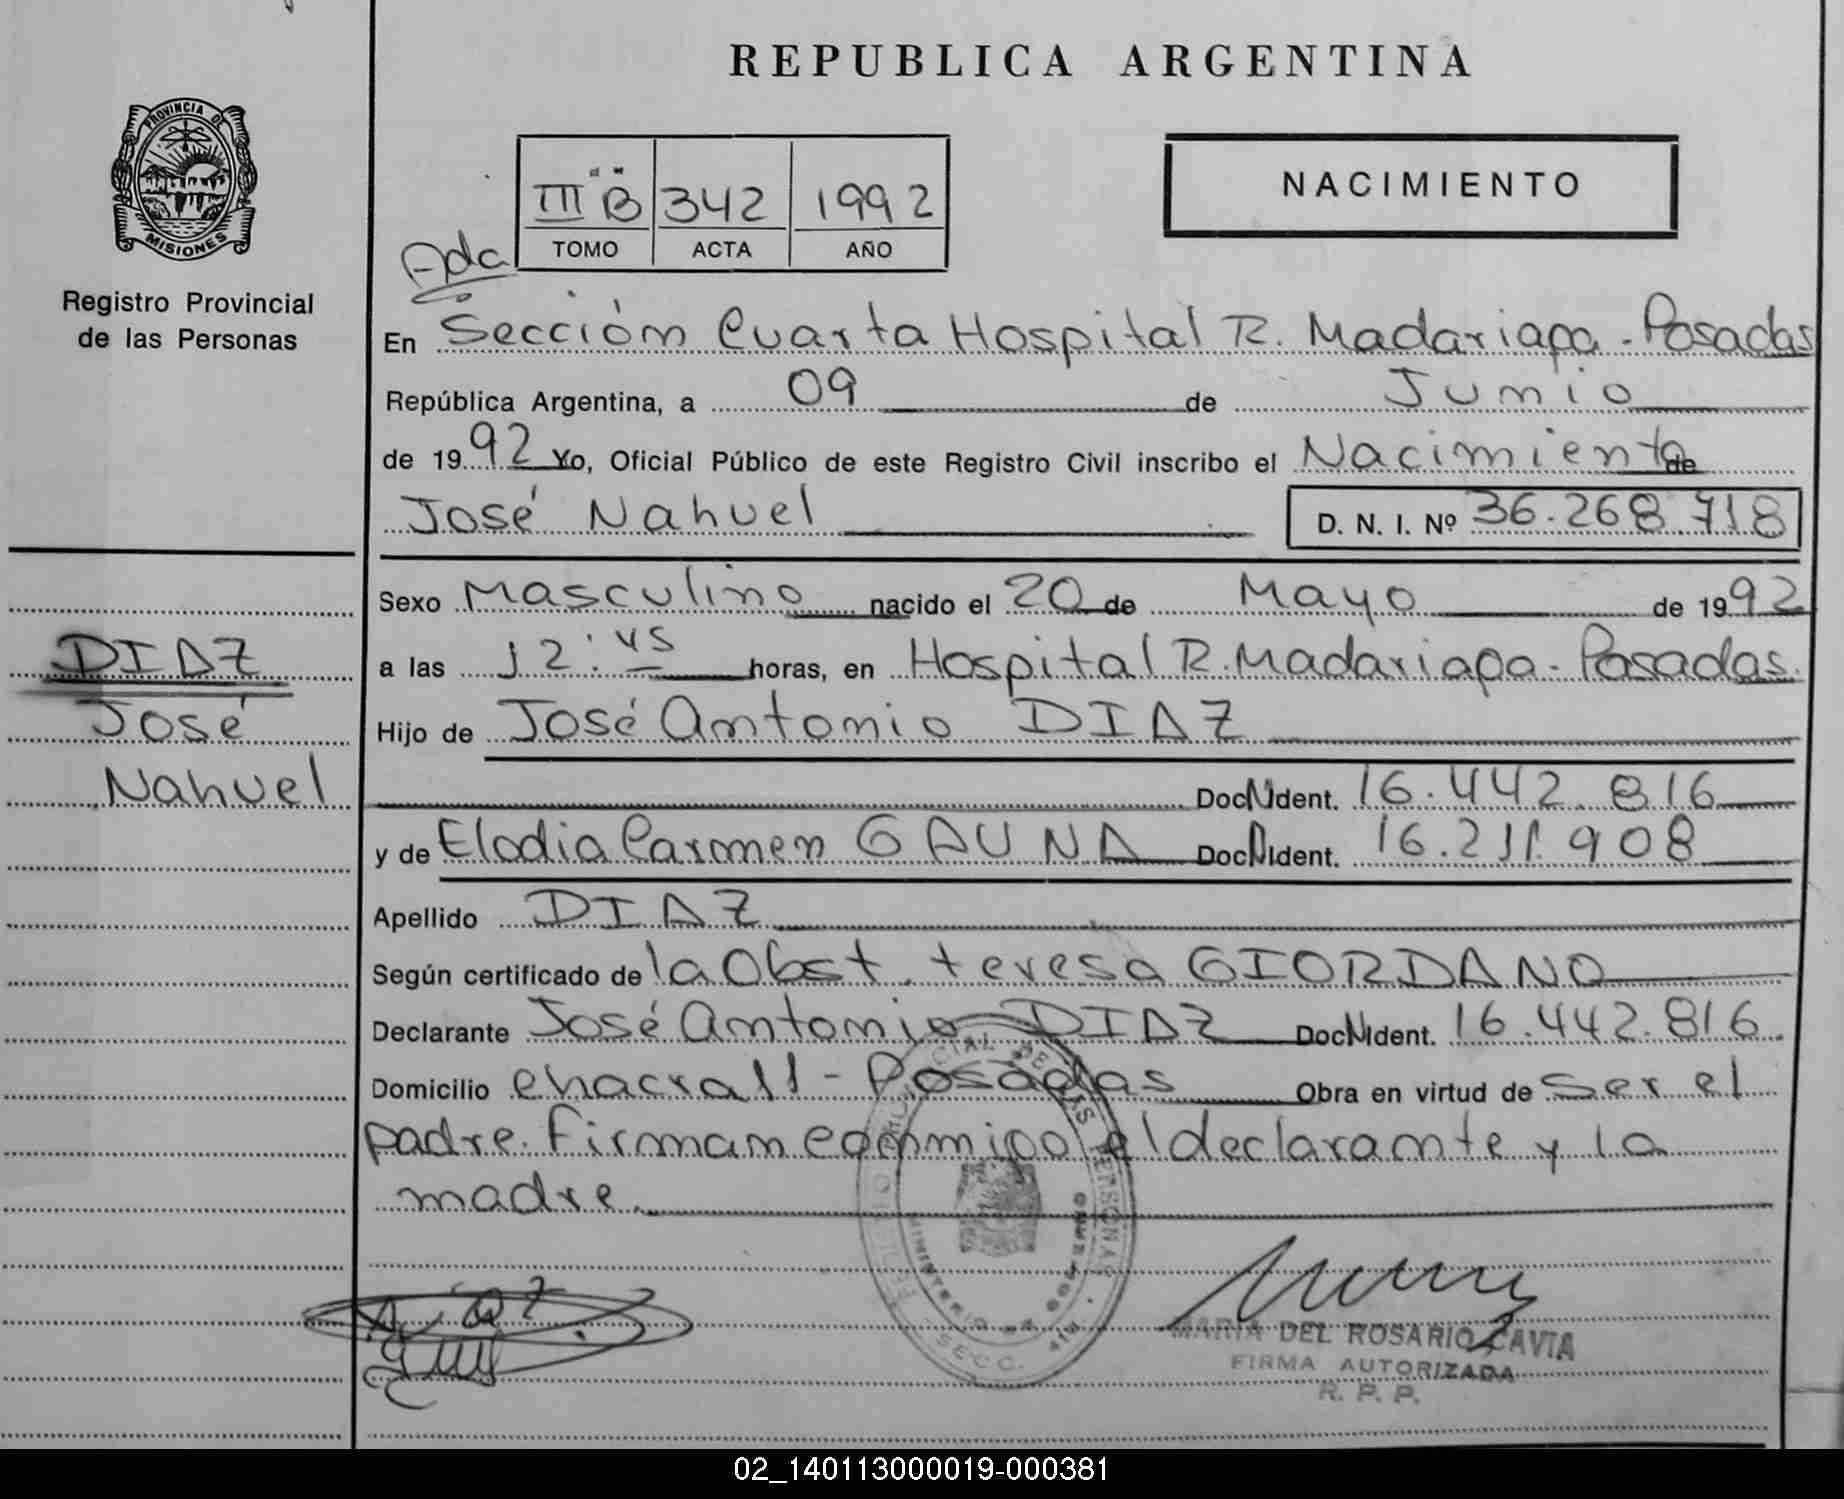 REPUBLICA ARGENTINA
PROVINCIA DE
MISIONES
Registro Provincial
de las Personas
III "B" 342 1992
TOMO ACTA AÑO
NACIMIENTO
Ada
En Sección Cuarta Hospital R. Madariaga - Posadas
República Argentina, a 09 de Junio
de 1992 Yo, Oficial Público de este Registro Civil inscribo el Nacimiento de
José Nahuel D. N. I. Nº 36.268.718
Sexo Masculino nacido el 20 de Mayo de 1992
DIAZ
José
Nahuel
a las 12:45 horas, en Hospital R. Madariaga - Posadas.
Hijo de José Antonio DIAZ
Doc N Ident. 16.442.816
y de Elodia Carmen GAUNA Doc N Ident. 16.211.908
Apellido DIAZ
Según certificado de la Obst. teresa GIORDANO
Declarante José Antonio DIAZ Doc N Ident. 16.442.816
Domicilio chacra 11 - Posadas Obra en virtud de Ser el
padre. Firman conmigo el declarante y la
madre.
MARIA DEL ROSARIO CAVIA
FIRMA AUTORIZADA
R. P. P.
02_140113000019-000381